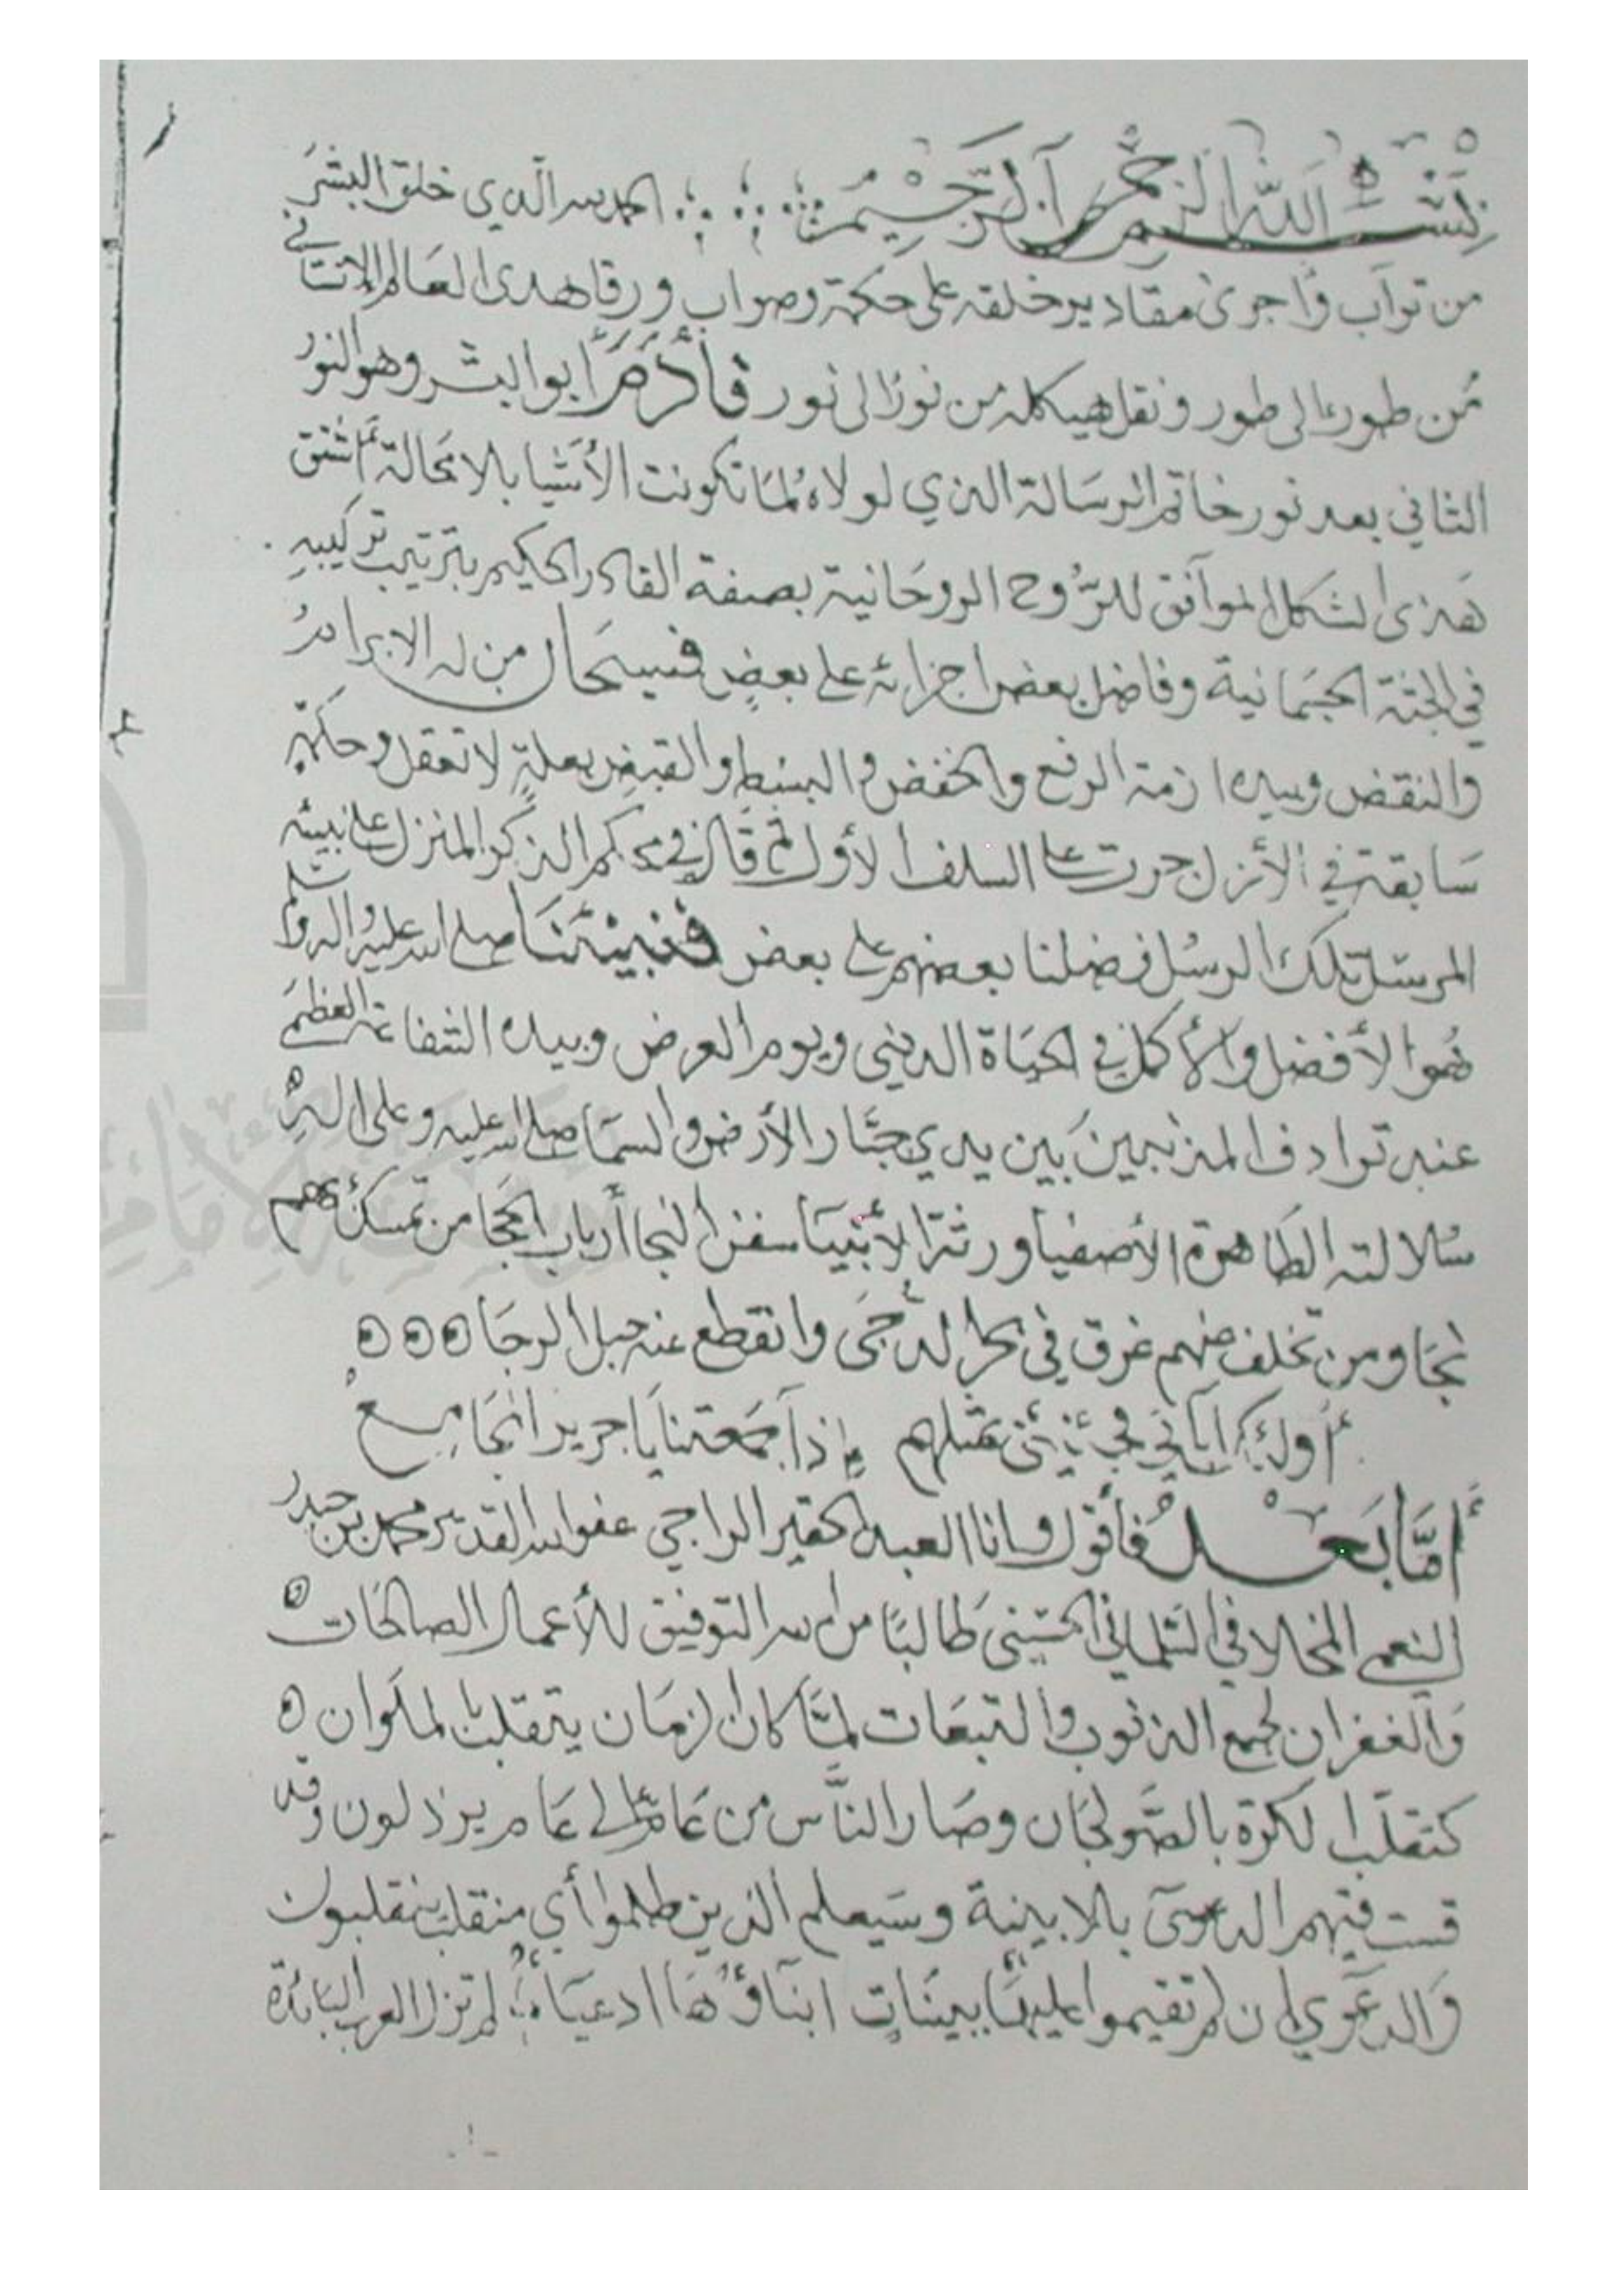 بسم الله الرحمن الرحيم الحمد لله الذي خلق البشر
من تراب وأجرى مقادير خلقه على حكمة وصواب ورقا هدى العالم الانساني
من طور الى طور ونقل هيكله من نور الى نور فأدم ابو البشر وهو النور
الثاني بعد نور خاتم الرسالة الذي لولاه لما تكونت الأشيا بلا محالة ثم اشتق
هذى الشكل الموافق للروح الروحانية بصفة القادر الحكيم بترتيب تركيبه
في الجثة الجسمانية وفاضل بعض اجزائه على بعض فسبحان من له الابرام
والنقض وبيده ازمة الرفع والخفض والبسط والقبض بعلة لا تعقل وحكمة
سابقة في الأزل جرت على السلف الأول ثم قال في محكم الذكر المنزل على نبيه
المرسل تلك الرسل فضلنا بعضهم على بعض فنبينا صلى الله عليه واله وسلم
هوا الأفضل والأكمل في الحياة الدينى ويوم العرض وبيده الشفاعة العظمى
عند ترادف المذنبين بين يدي جبار الأرض والسما صلى الله عليه وعلى اله
سلالته الطاهرة الأصفيا ورثة الأنبيا سفن النجا أرباب الحجا من تمسك بهم
نجا ومن تخلف عنهم غرق في بحر الدجى وانقطع عنه حبل الرجا
أولئك ابائي فجئني بمثلهم إذا جمعتنا يا جرير المجامع
أما بعد فأقول وانا العبد الحقير الراجي عفو الله القدير محمد بن حيدر
النعمي المخلافي السليماني الحسني طالبا من الله التوفيق للأعمال الصالحات
والغفران لجمع الذنوب والتبعات لما كان الزمان يتقلب بالملوان
كتقلب الكرة بالصولجان وصار الناس من عام الى عام يرذلون وقد
فست فيهم الدعوى بلا بينة وسيعلم الذين ظلموا أي منقلب ينقلبون
والدعوي إن لم تقيموا عليها بينات ابناؤها ادعياء لم تزل العرب البائدة